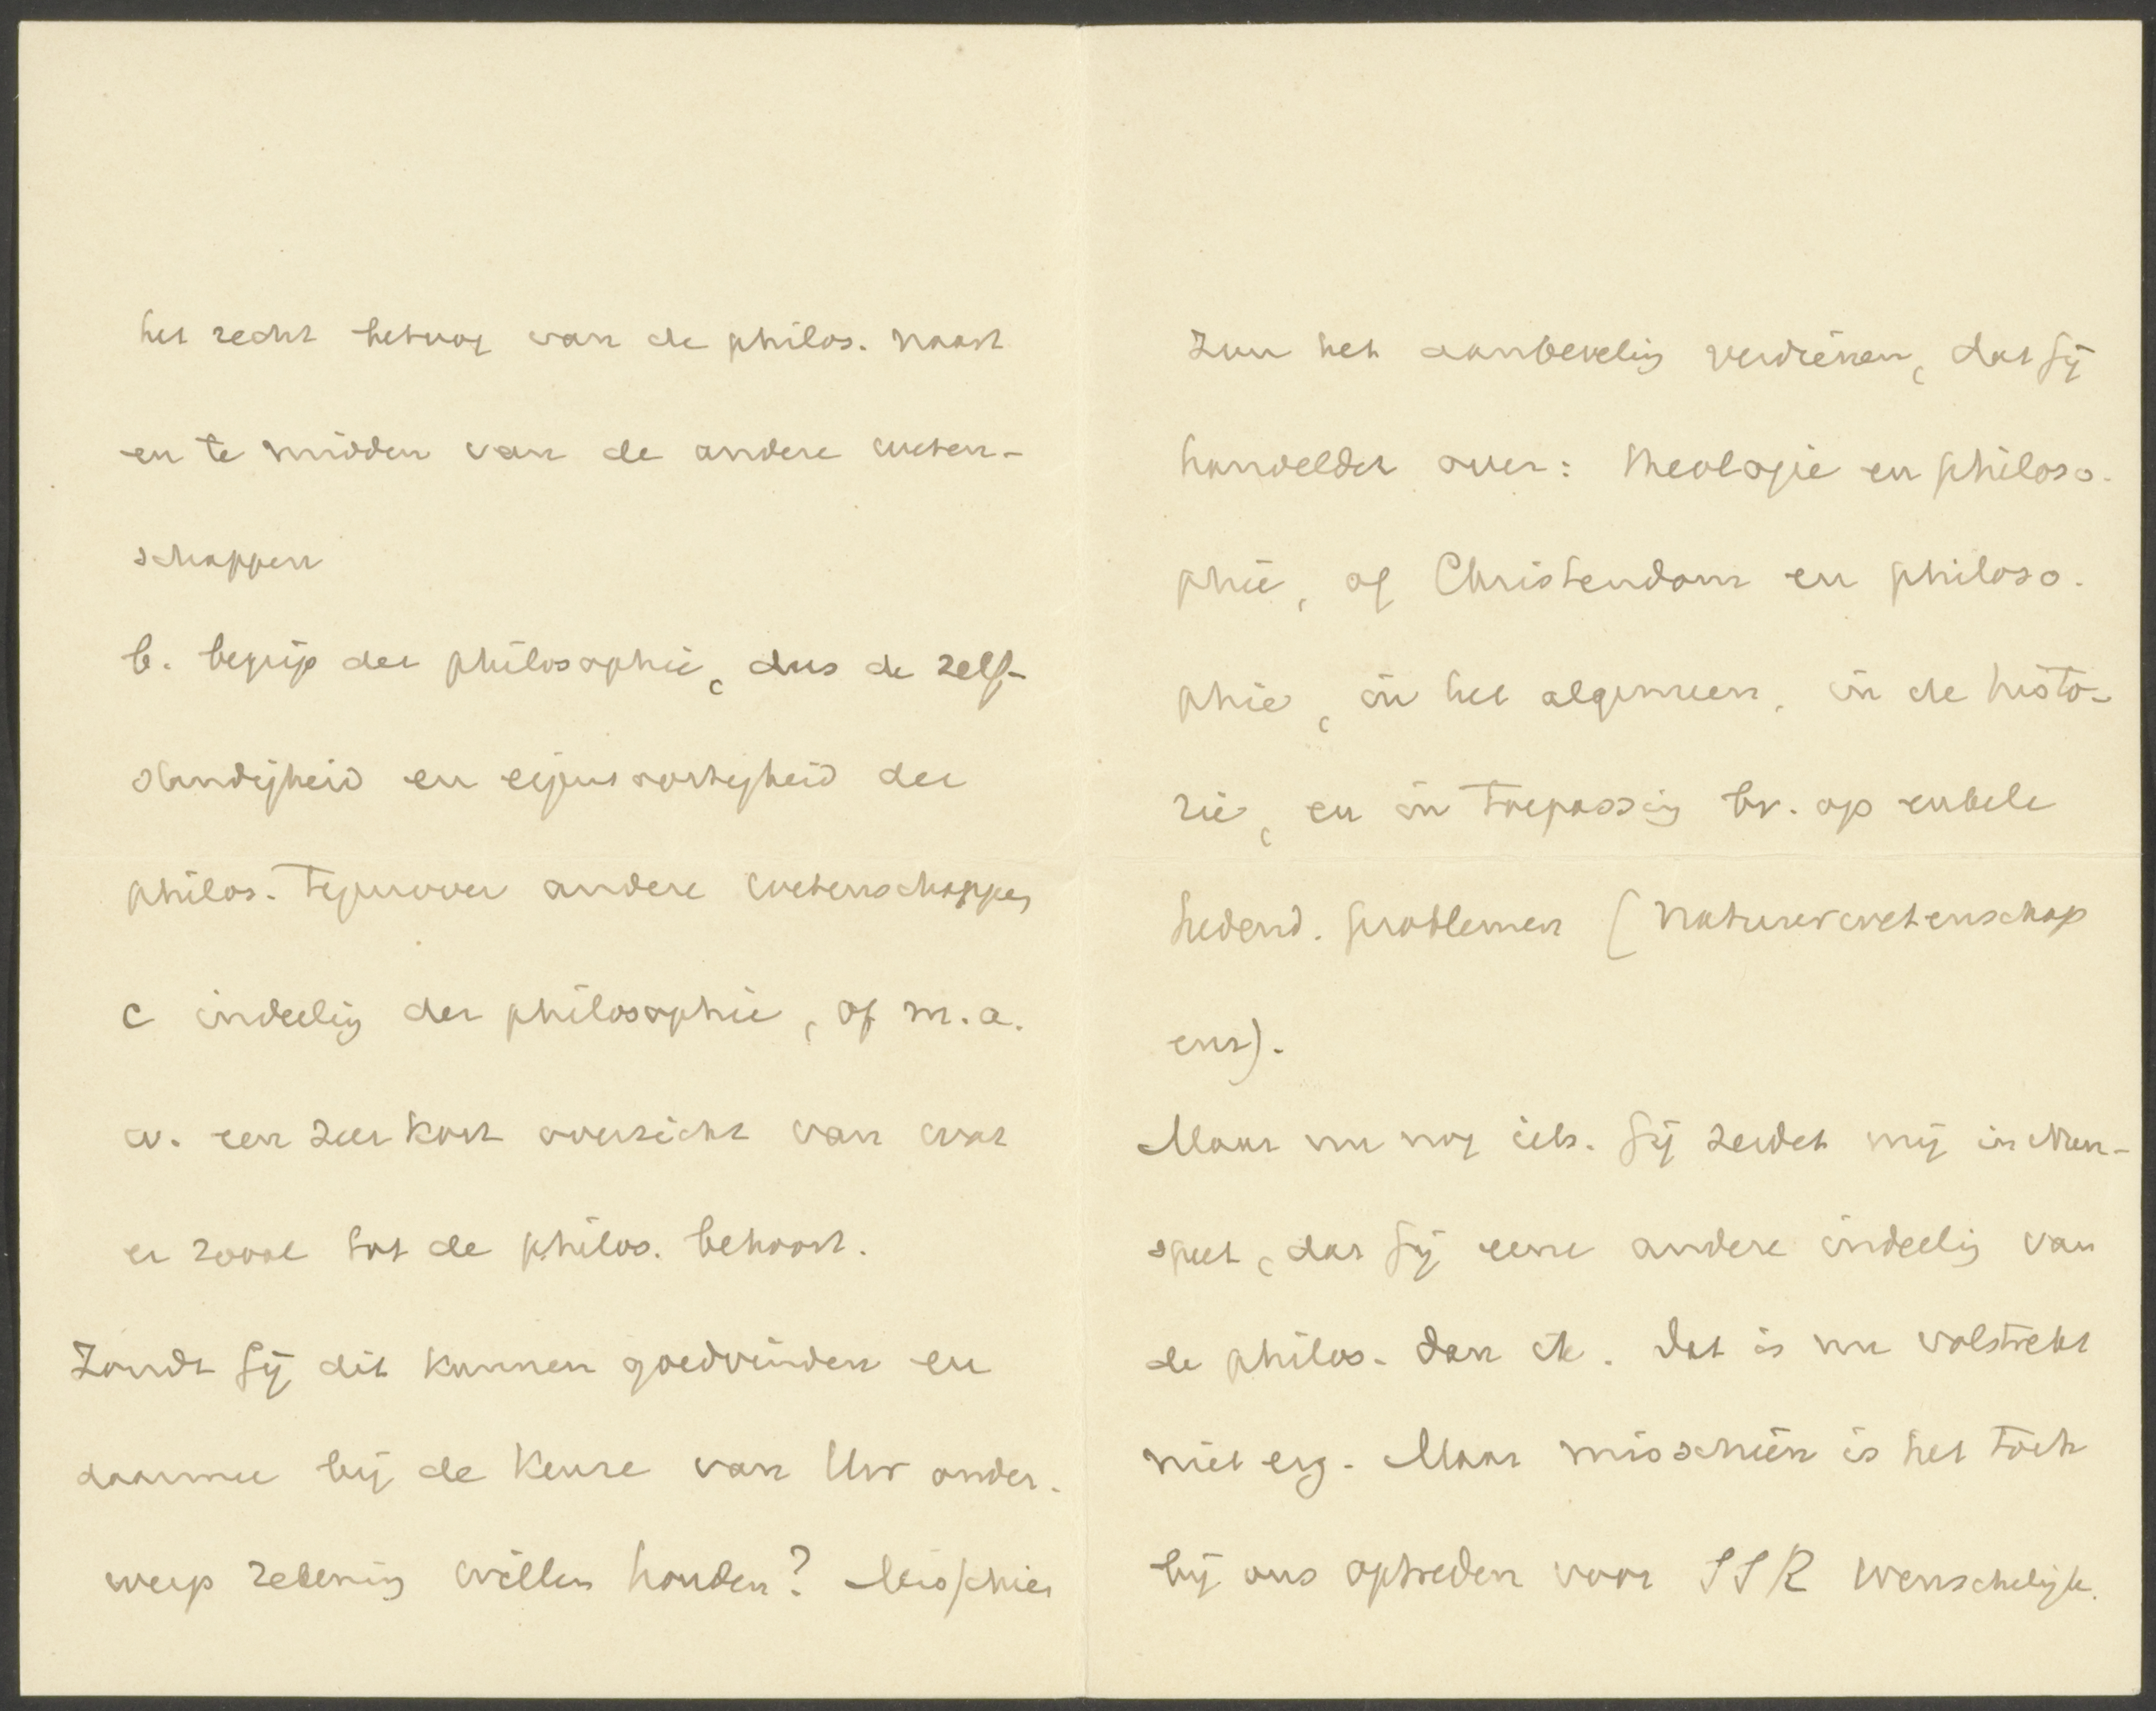 het recht betoog van de philos. naast
en te midden van de andere weten-
schappen
b. begrip der philosophie, dus de zelf-
standigheid en eigensoortigheid der
philos. tegenover andere wetenschappen
c indeeling der philosophie, of m.a.
w. een zeer kort overzicht van wat
er zooal tot de philos. behoort.
Zoudt Gij dit kunnen goedvinden en
daarmee bij de keuze van Uw onder-
werp rekening willen houden? Misschien
zou het aanbeveling verdienen, dat Gij
handeldet over: theologie en philoso-
phie, of Christendom en philoso-
phie, in het algemeen, in de histo-
rie, en in toepassing bv. op enkele
hedend. problemen (natuurwetenschap
enz).
Maar nu nog iets. Gij zeidet mij in Nun-
speet, dat Gij eene andere indeeling van
de philos. dan ik. Dat is nu volstrekt
niet erg. Maar misschien is het toch
bij ons optreden voor SSR wenschelijk.